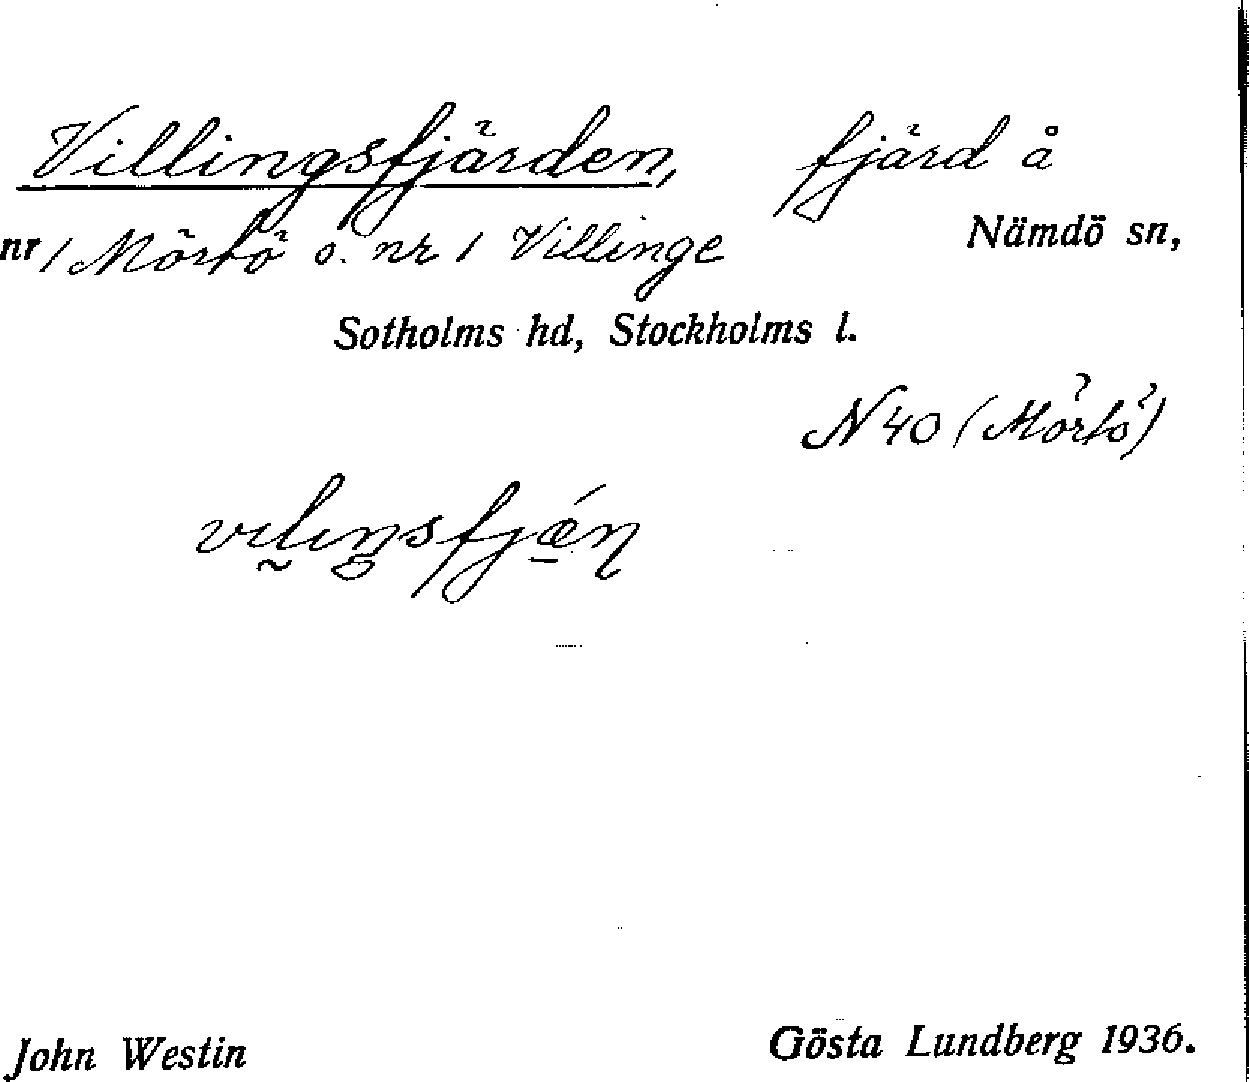 Villingsfjärden, fjärd å
nr 1 Mörtö o. nr 1 Villinge Nämdö sn,
Sotholms hd, Stockholms l.
N 40 (Mörtö)
John Westin Gösta Lundberg 1936.